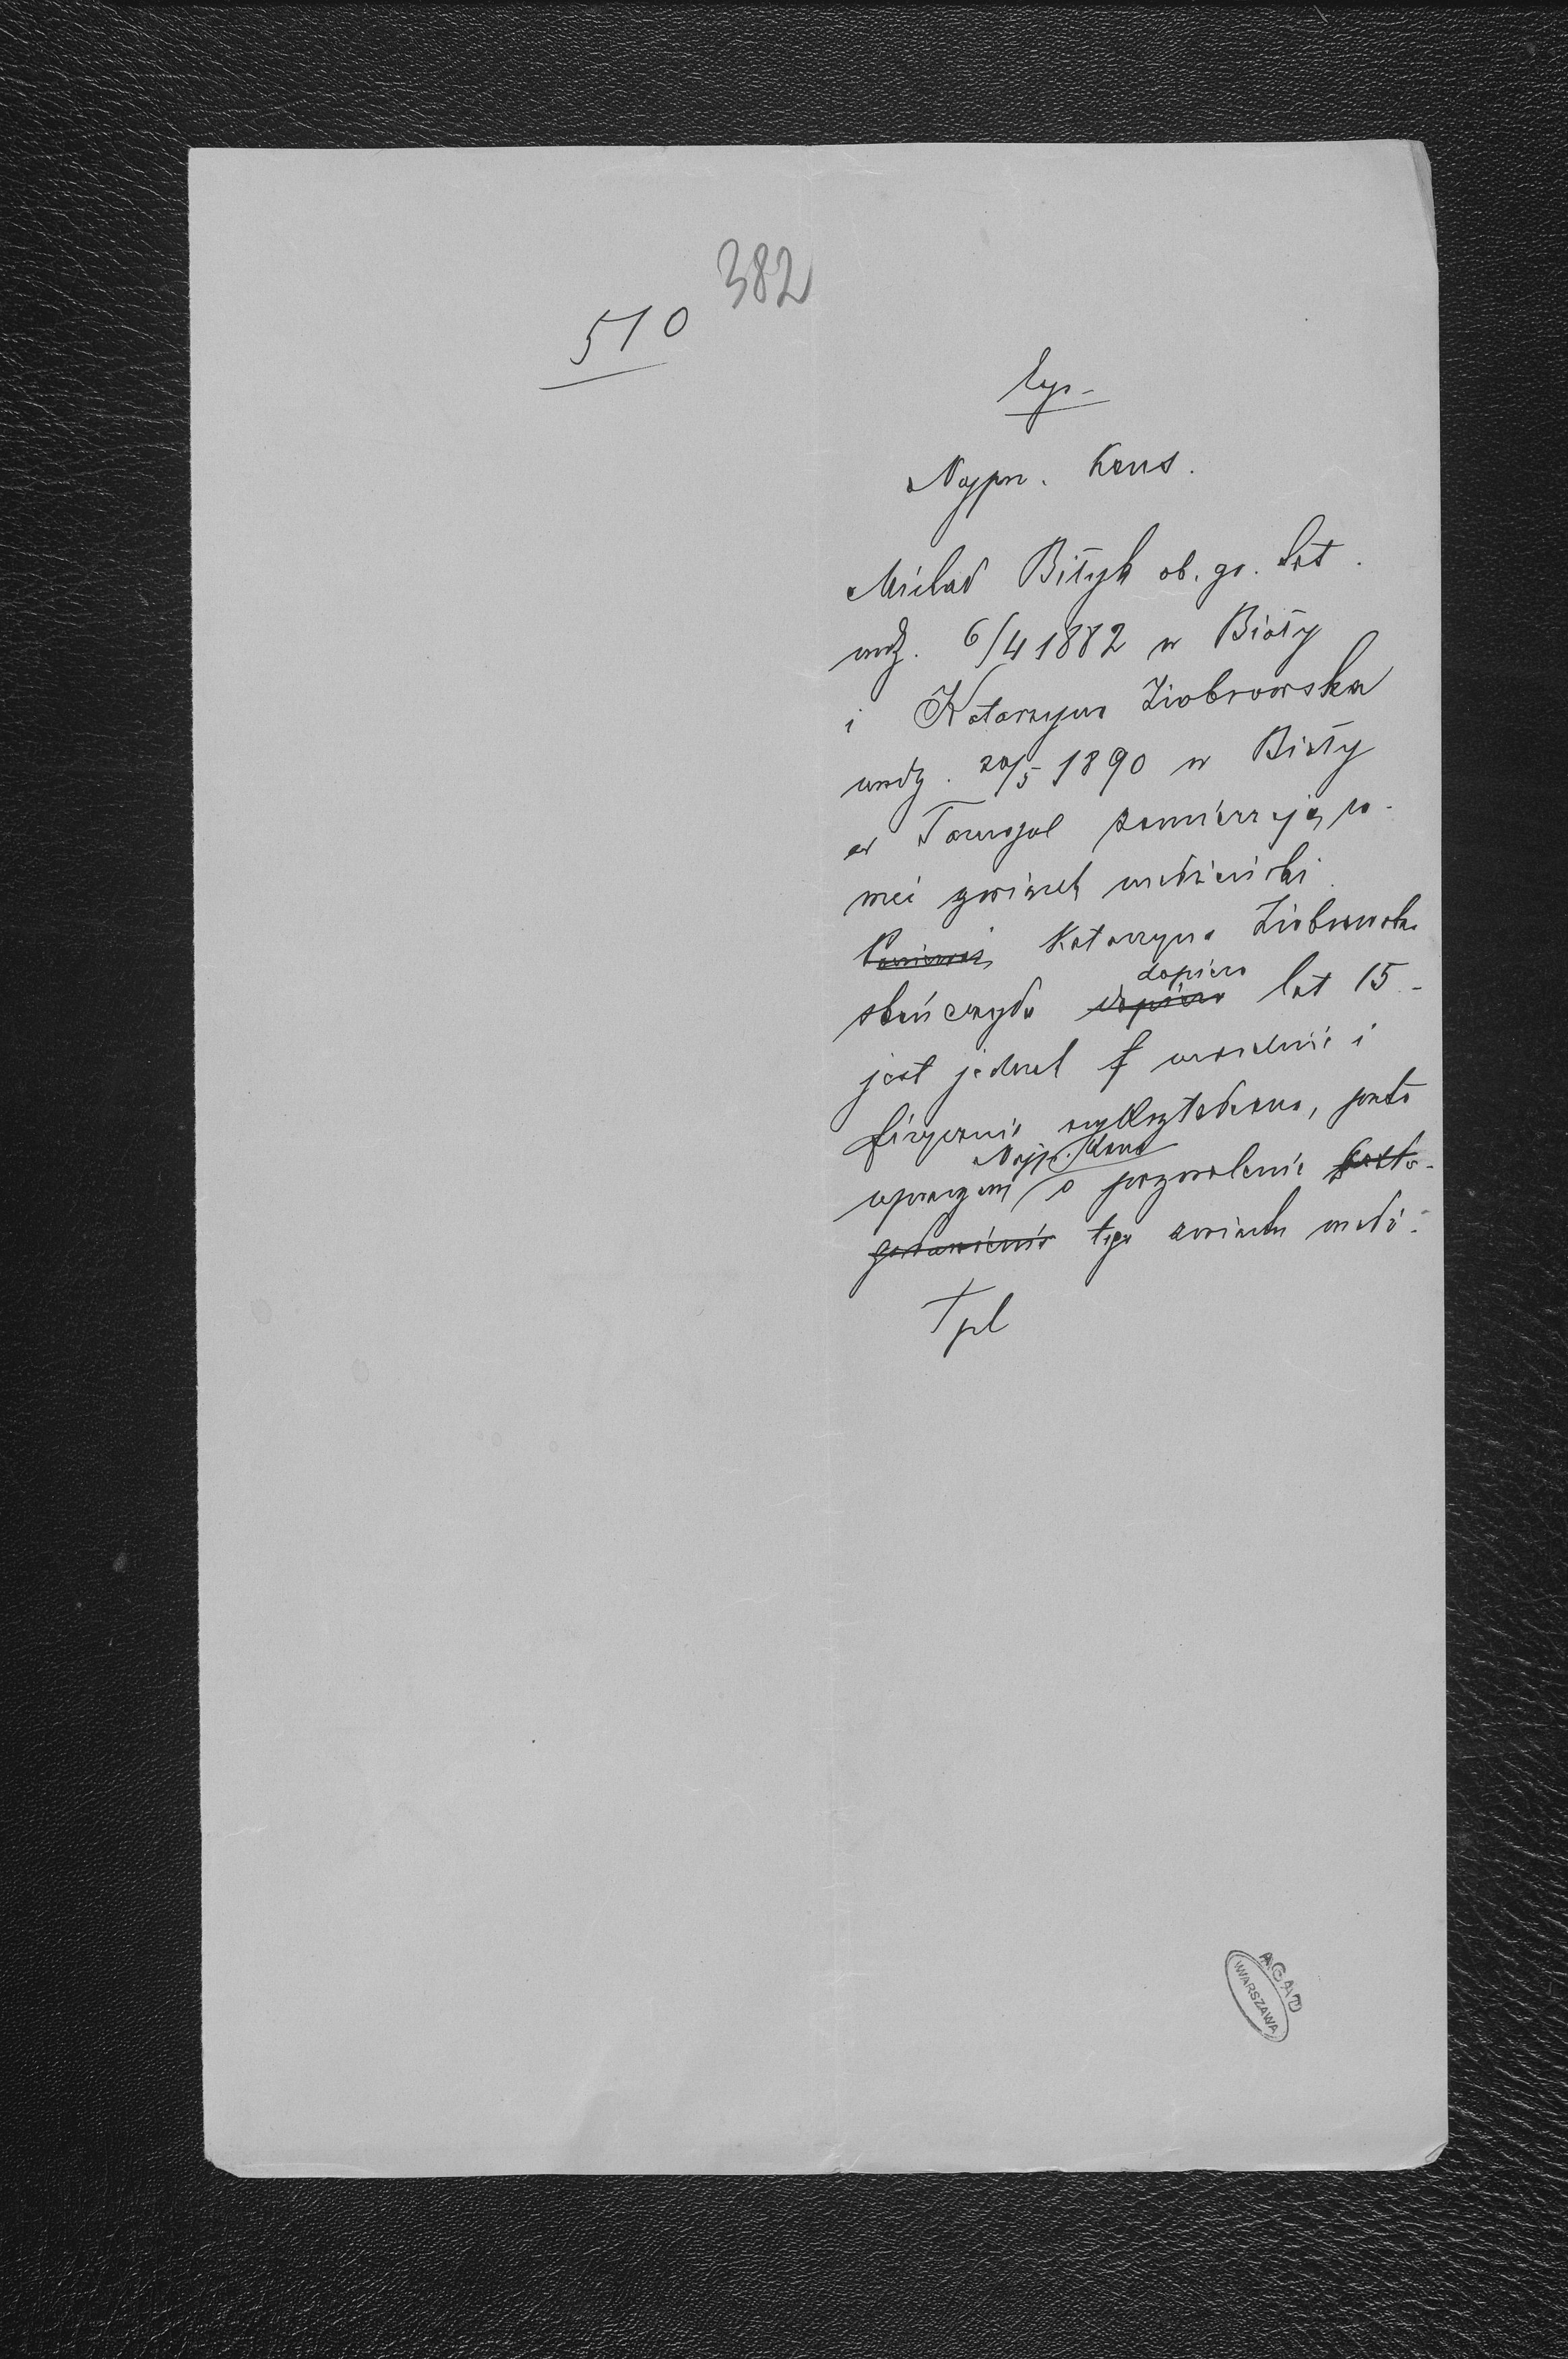 382
510
Najprz. Kons.
Michał Biłyk ob. gr. lat.
urodz. 6/4 1882 w Biały
i Katarzyna Ziobrowska
urodz. 20/5 1890 w Biały
ad Tarnopol zamierzają za-
wrzeć związek małżeński
Ponieważ Katarzyna Ziobrowska
skończyła dopiero dopiero lat 15 -
jest jednak f umysłowie i
fizycznie wykształcona, przeto
Najp. Kons
upraszam o pozwolenie
tego związku małż.
Tpl
AGAD
WARSZAWA